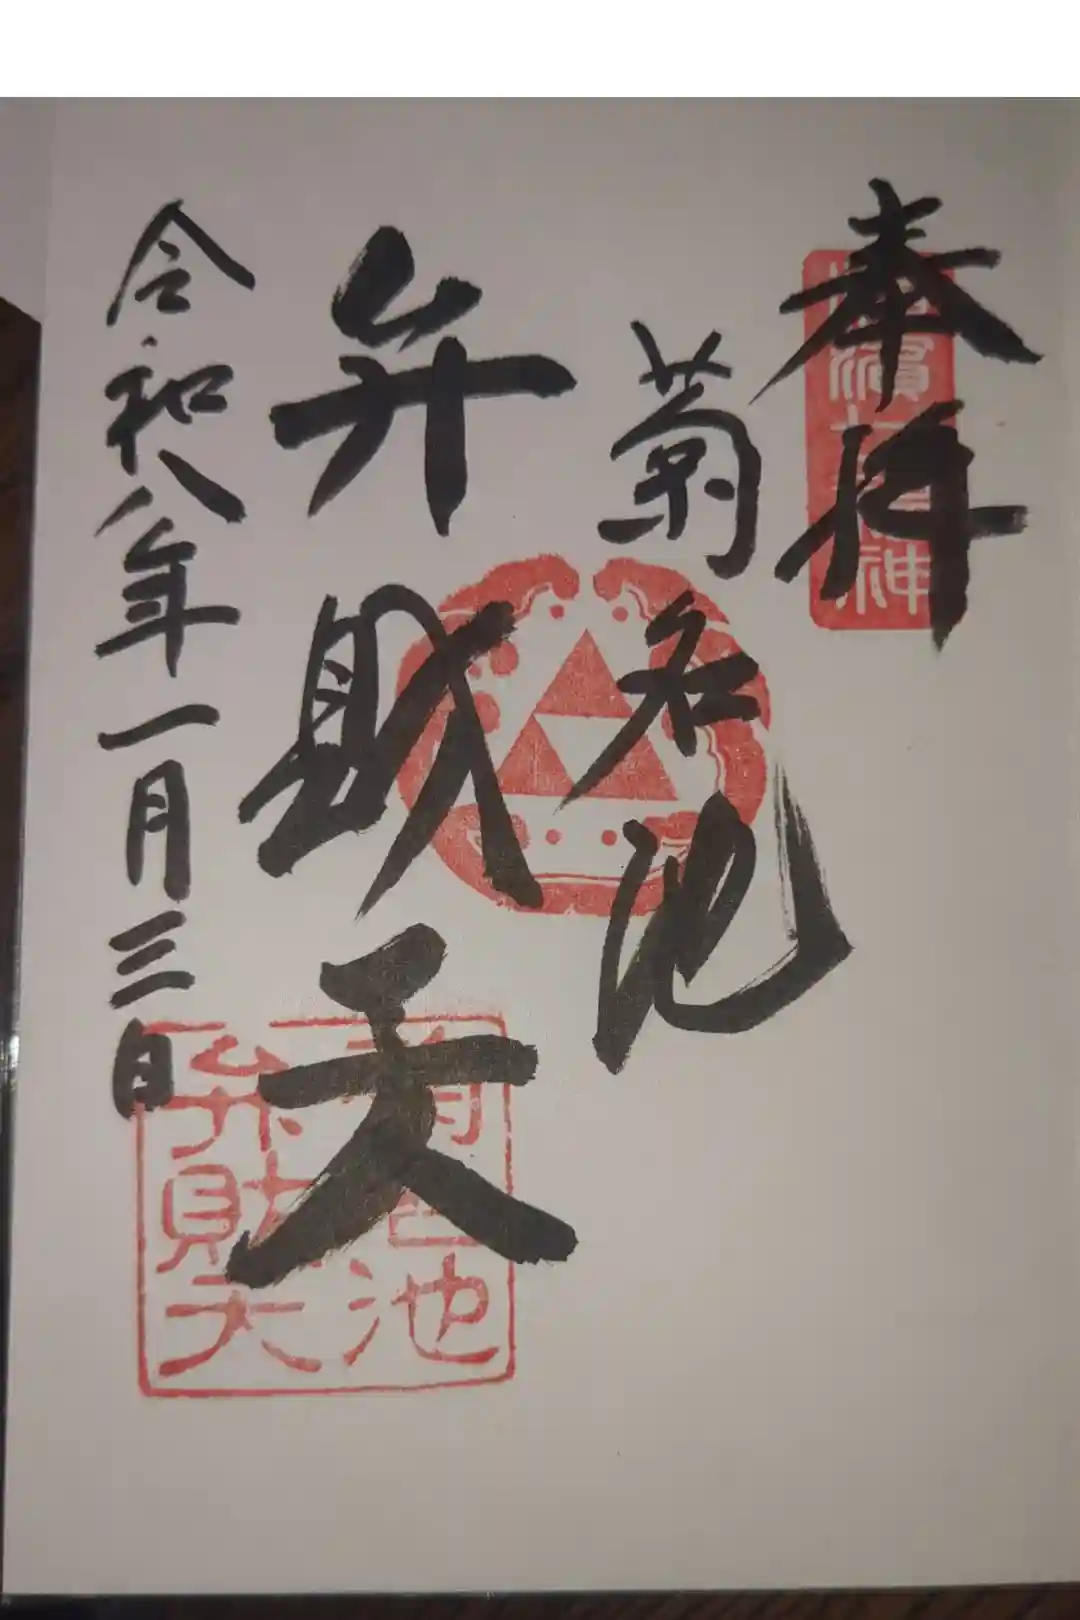 奉拝
菊名池
弁財天
令和八年一月三日
横濱七福神
菊名池
弁財天